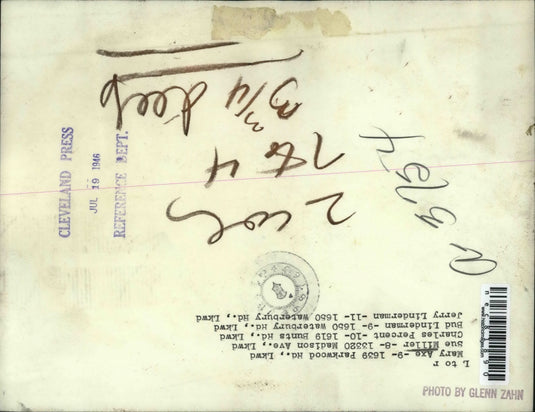 CLEVELAND PRESS
JUL 19 1946
REFERENCE DEPT.
2 col
3/4 deep
L to r
Mary Axe -9- 1639 Parkwood Rd., Lkwd
Sue Miller -8- 13320 Madison Ave., Lkwd
Charles Percent -10- 1619 Bunts Rd., Lkwd
Bud Linderman -9- 1650 Waterbury Rd., Lkwd
Jerry Linderman -11- 1650 Waterbury Rd., Lkwd
PHOTO BY GLENN ZAHN